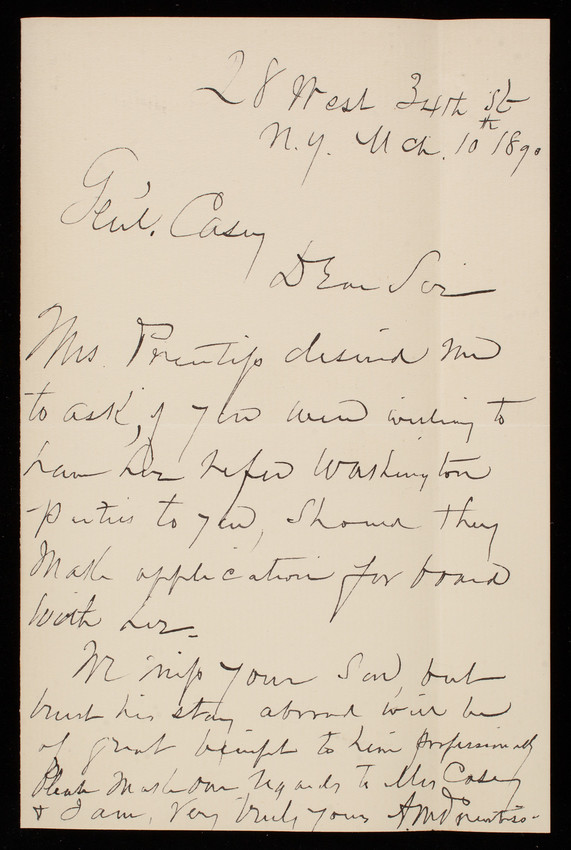 28 West 34th St
N.Y. Mch. 10th 1890
Gen'l. Casey
Dear Sir
Mrs. Prentiss desired me
to ask, if you were willing to
have her refer Washington
parties to you, should they
make application for board
with her.
We miss your Son, but
trust his stay abroad will be
of great benefit to him professionally
Please make our regards to Mrs Casey
& I am, Very truly yours A M Prentiss.